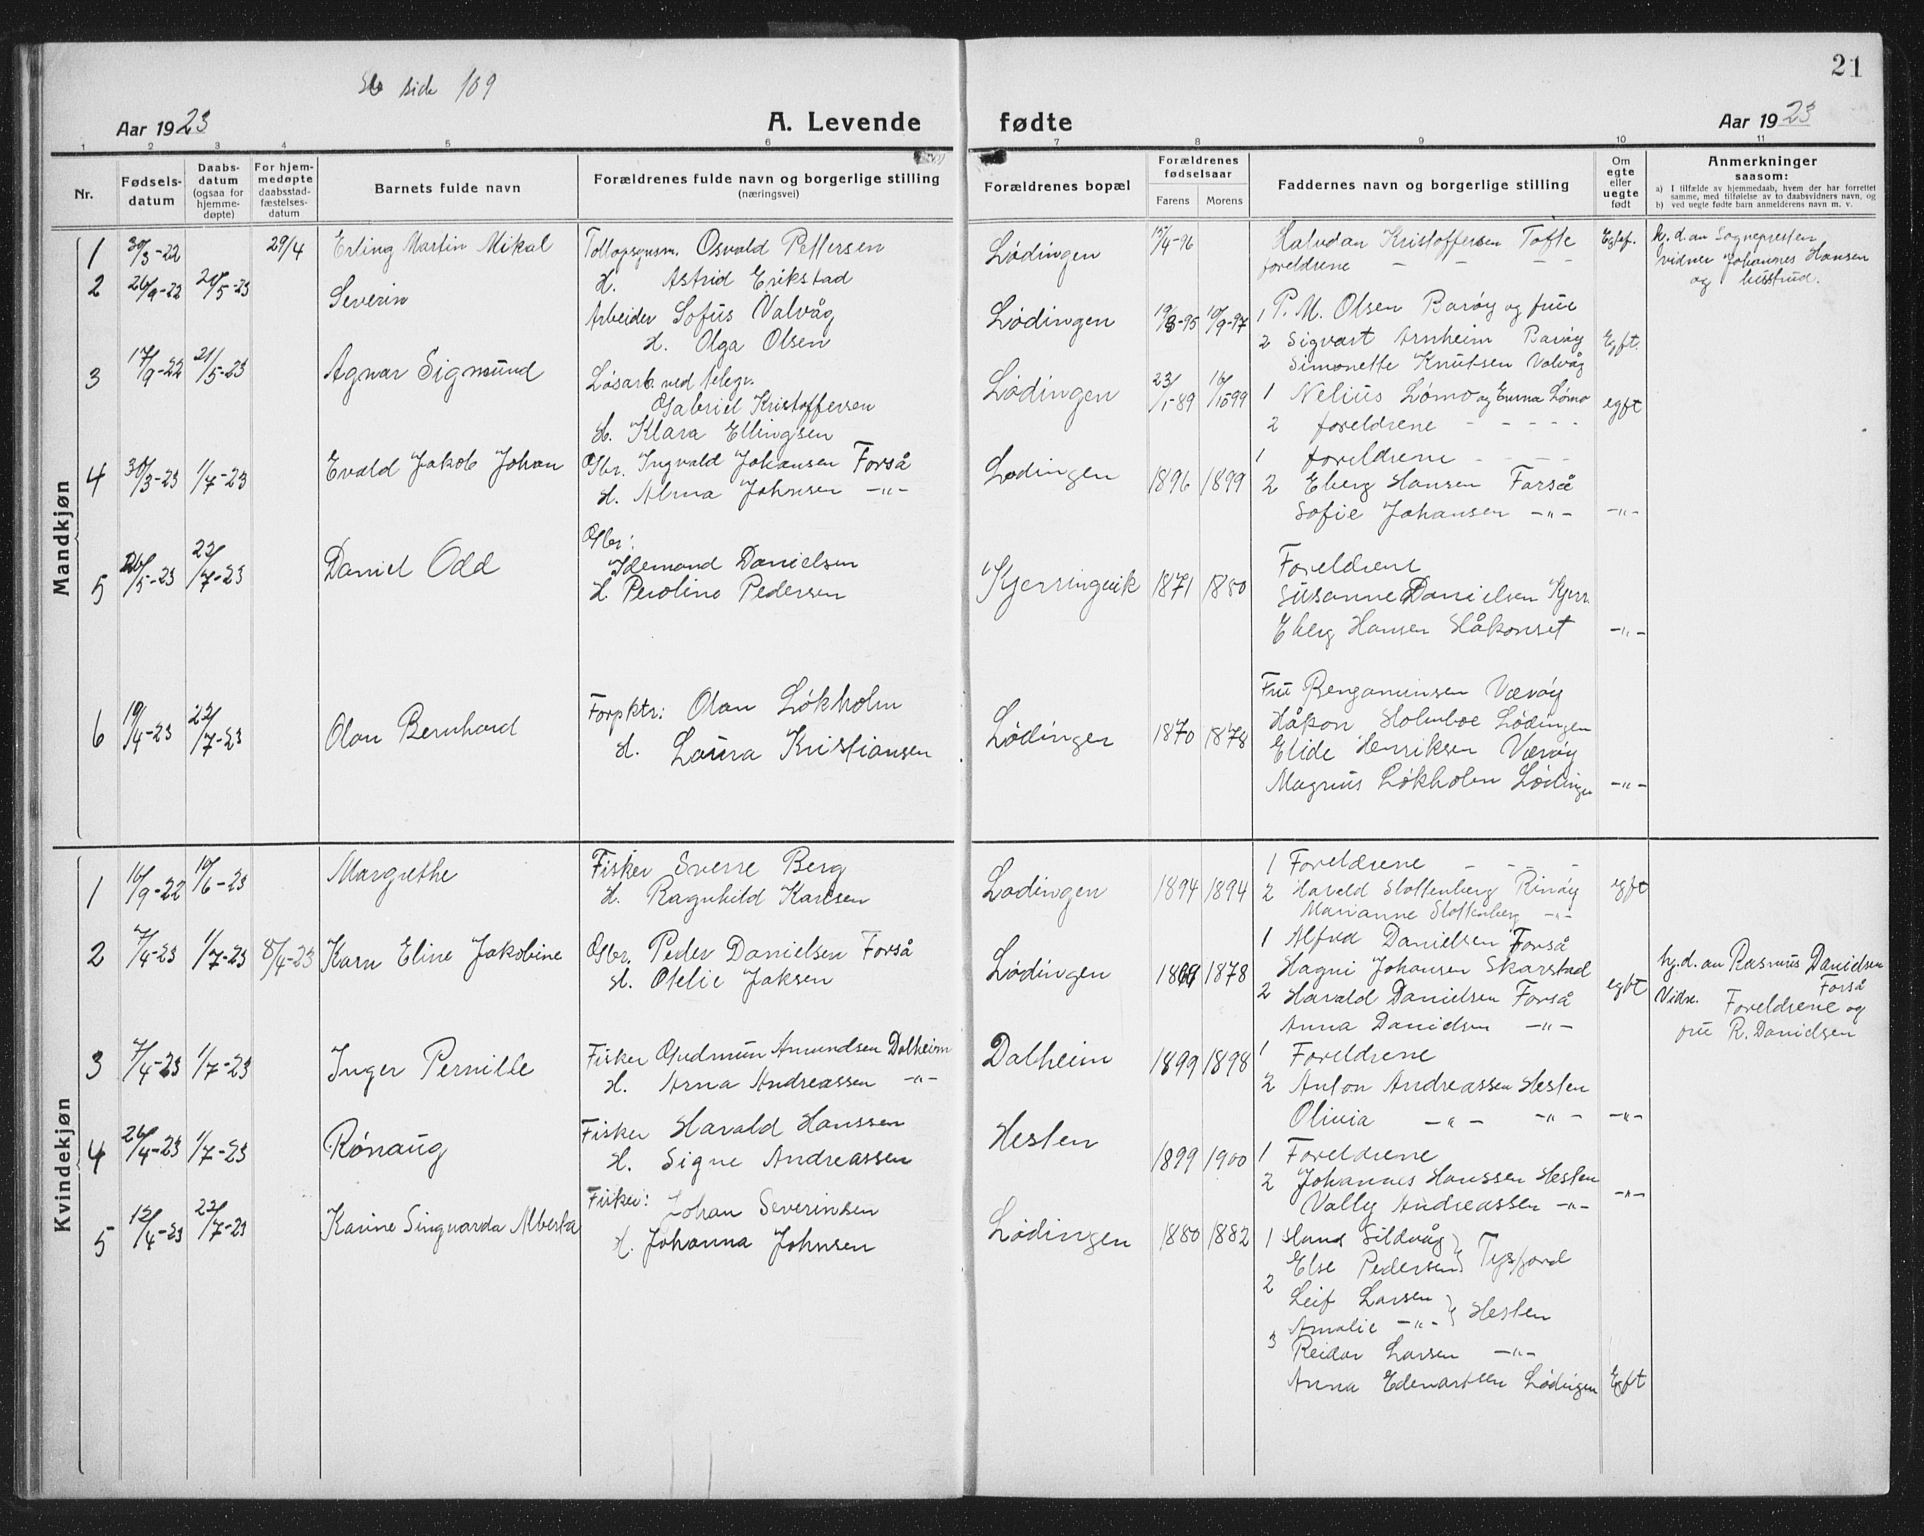 Se side 109
21
Aar 1923
A. Levende fødte
Aar 1923
1 2 3 4 5 6 7 8 9 10 11
Nr.
Fødsels-
datum
Daabs-
datum
(ogsaa for
hjemme-
døpte)
For hjem-
medøpte
daabsstad-
fæstelses-
datum
Barnets fulde navn
Forældrenes fulde navn og borgerlige stilling
(næringsvei)
Forældrenes bopæl
Forældrenes
fødselsaar
Farens Morens
Faddernes navn og borgerlige stilling
Om
egte
eller
uegte
født
Anmerkninger
saasom:
a) I tilfælde av hjemmedaab, hvem der har forrettet
samme, med tilføielse av to daabsvidners navn, og
b) ved uegte fødte barn anmelderens navn m. v.
Mandkjøn
1 30/3-22 29/4 Erling Martin Mikal
Osvald Pettersen
H. Astrid Erikstad
Lødingen
15/4-96
Halvdan Kristoffersen Tofte
foreldrene - - -
h.d. av Sognepresten
Vidner Johannes Hansen
og hustrud.
2 26/9-22 20/5-23 Severin
Arbeider Sofus Valvåg
H. Olga Olsen
Lødingen
19/8-95 10/9-97
1 P. M. Olsen Barøy og frue
2 Sigvart Arnheim Barøy
Simonette Knutsen Valvåg
Egft.
3 17/9-22 21/5-23 Agnar Sigmund
Løsarb. ved telegr.
Gabriel Kristoffersen
H. Klara Ellingsen
Lødingen
23/1-89
1 Nelius Lømo og Emma Lømo
2 foreldrene - - - - -
egft
4 30/3-23 1/7-23 Evald Jakob Johan
Gbr. Ingvald Johansen Forså
H. Alma Johnsen -"-
Lødingen
1896 1899
1 foreldrene - - - -
2 Eberg Hansen Forså
Sofie Johansen -"- -"-
5 26/5-23 22/7-23 Daniel Odd
Gbr:
Idemand Danielsen
H Peroline Pedersen
Kjerringvik
1871 1880
Foreldrene
Susanne Danielsen Kjerr.
Eberg Hansen Håkonset -"-
6 19/4-23 22/7-23 Olav Bernhard
Forpktr: Olav Løkholm
H. Laura Kristiansen
Lødingen
1870 1878
Fru Bengaminsen Værøy
Håkon Holmboe Lødingen
Elide Henriksen Værøy
Magnus Løkholm Lødingen -"-
Kvindekjøn
1 16/9-22 10/6-23 Margrethe
Fisker Sverre Berg
H. Ragnhild Karlsen
Lødingen
1894 1894
1 Foreldrene - - - -
2 Harald Stoltenberg Rinøy
Marianne Stoltenberg -"-
egft
2 7/4-23 1/7-23 8/4-23 Karn Eline Jakobine
Gbr. Peder Danielsen Forså
H. Otelie Jaksen
Lødingen
1878
1 Alfred Danielsen Forså
Hagni Johansen Skarstad
2 Harald Danielsen Forså
Anna Danielsen -"-
egft
hj.d. av Rasmus Danielsen
Forså
Vidne. Foreldrene og
fru R. Danielsen
3 7/4-23 1/7-23 Inger Pernille
Fisker Gudmun Amundsen Dalheim
H. Arna Andreassen -"-
Dalheim
1899 1898
1 Foreldrene
2 Anton Andreassen Hesten
Olivia -"- -"- -"-
4 26/4-23 1/7-23 Rønaug
Fisker Harald Hanssen
H. Signe Andreassen
Hesten
1899 1900
1 Foreldrene
2 Johannes Hanssen Hesten
Vally Andreassen -"- -"-
5 12/4-23 22/7-23 Karine Singvarda Alberta
Fisker: Johan Severinsen
H. Johanna Johnsen
Lødingen
1880 1882
1 Hans Sildvåg
Else Pedersen } Tysfjord
2 Leif Larsen
Amalie -"- } Hesten
3 Reidar Larsen -"-
Anna Edvardsen Lødingen Egft